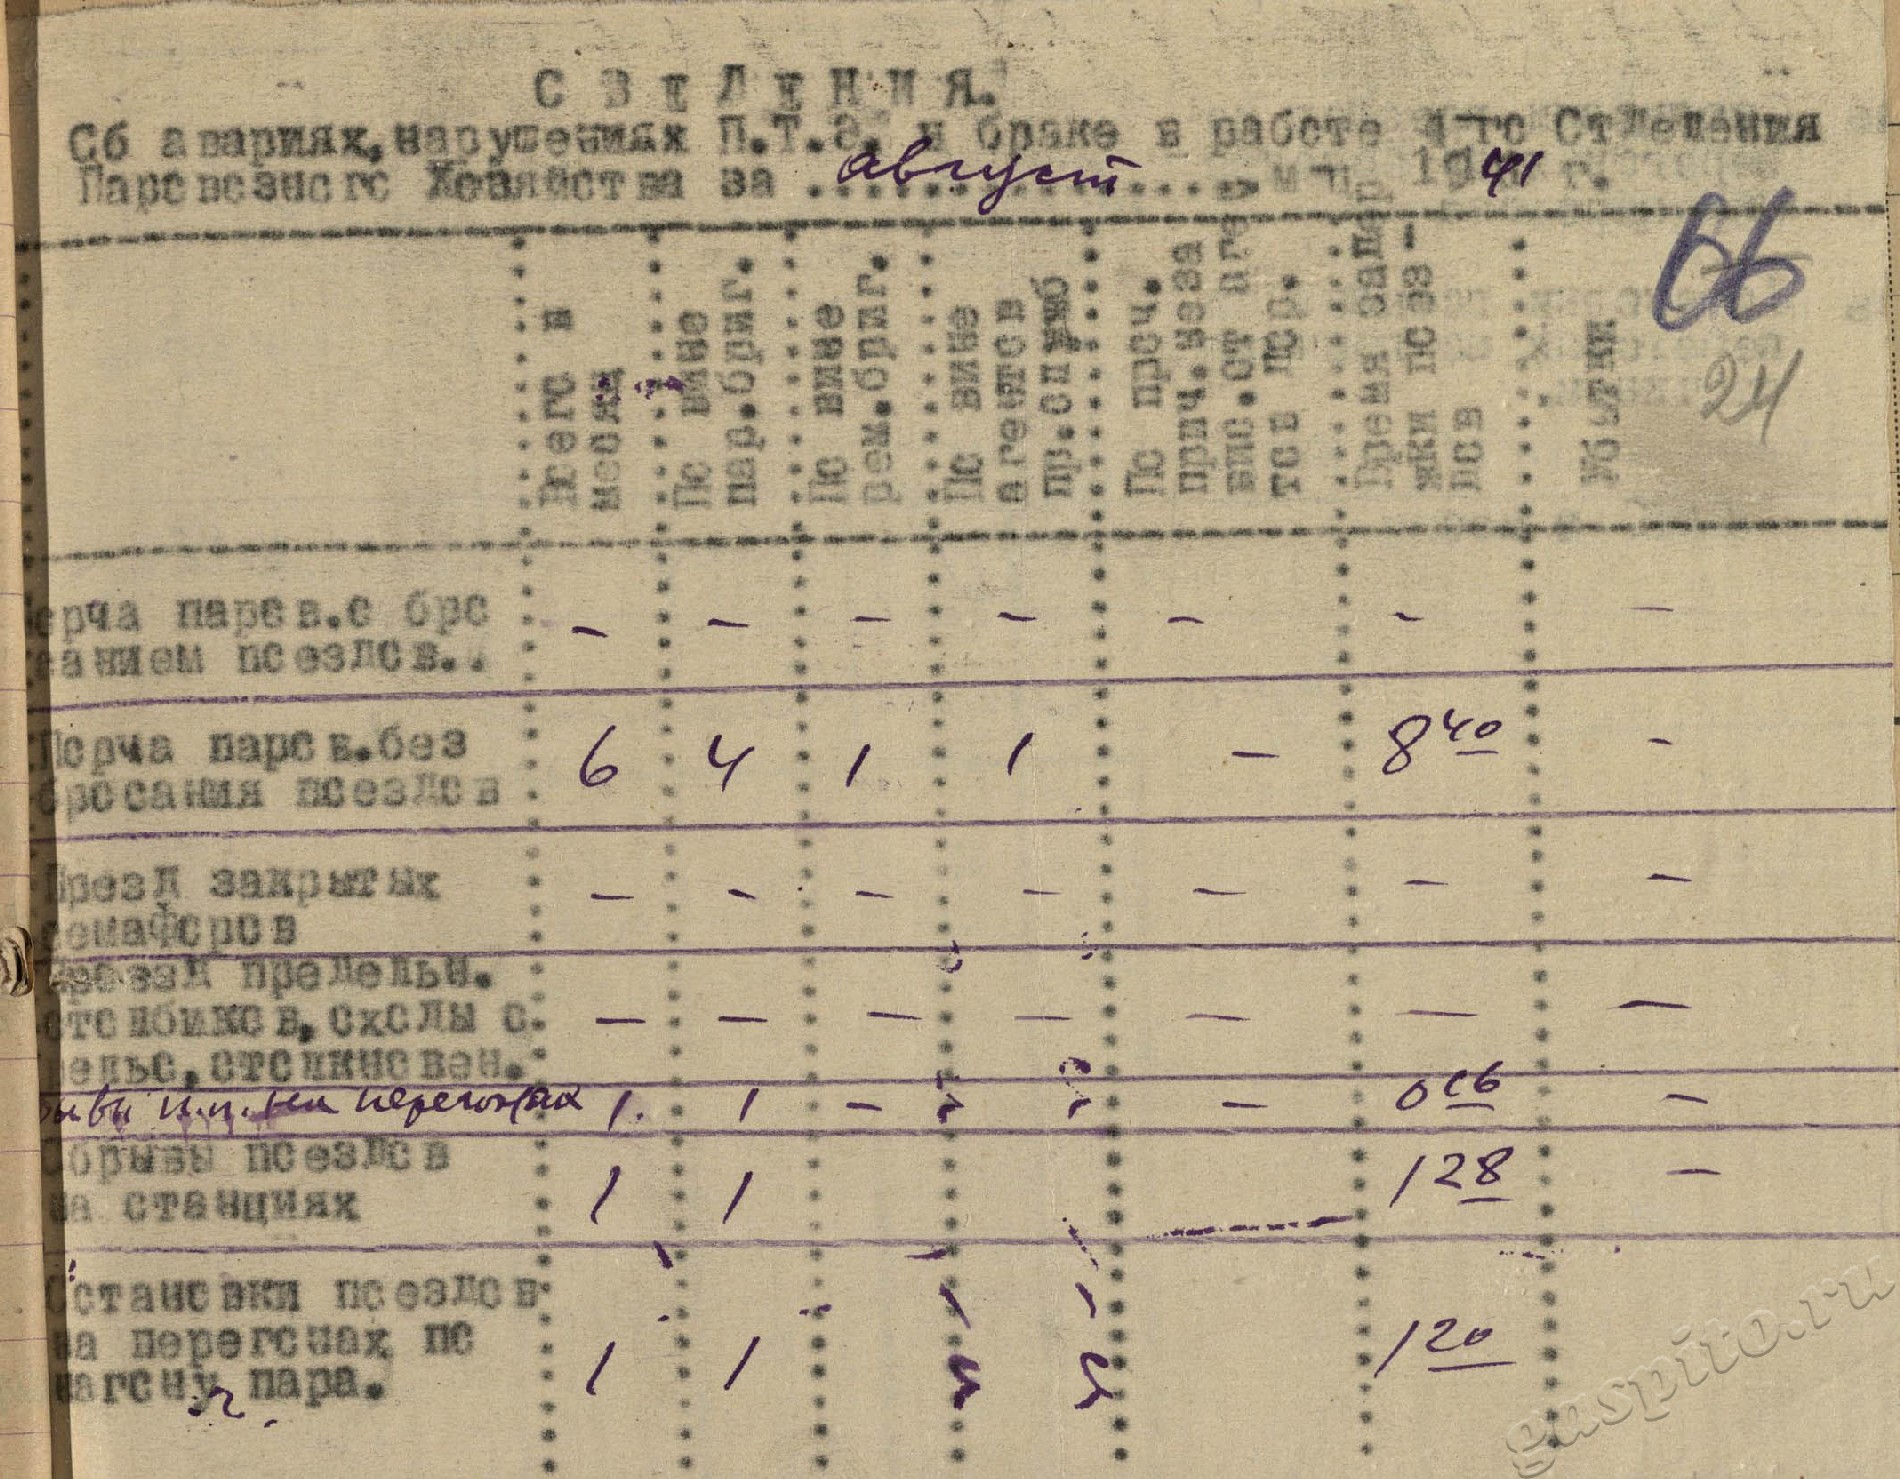 СВЕДЕНИЯ.
Об авариях, нарушениях П.Т.Э. и браке в работе 4-го Отделения
Паровозного Хозяйства за август м-ц 1941 г.
66
24
Всего в
месяц
По вине
пар.бриг.
По вине
рем.бриг.
По вине
агентов
пр.служб
По проч.
прич.неза
вис.от аген
тов пор.
Время задер
жки поез-
пов
Убытки
Порча паров.с бро
санием поездов..
- - - - - - -
Порча паров.без
бросания поездов
6 4 1 1 - 8 40 -
Проезд закрытых
семафоров
- - - - - - -
Проезд предельн.
столбиков, сходы с.
рельс, столкновен.
- - - - - - -
п.п. на перегонах 1. 1 - - 0 06 -
Обрывы поездов
на станциях
1 1 1 28 -
Остановки поездов
на перегонах по
нагону пара.
1 1 1 20
gaspito.ru